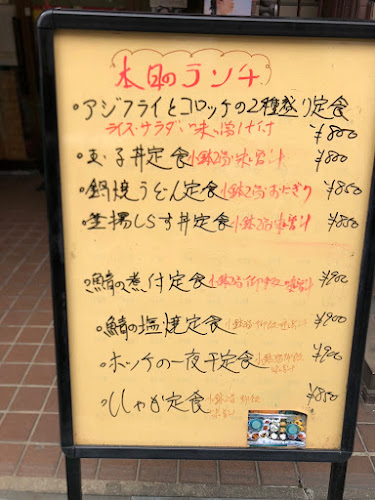 本日のランチ
・アジフライとコロッケの2種盛り定食
ライス・サラダ・味噌汁付 ¥800
・玉子丼定食 小鉢2ヶ味噌汁 ¥800
・鍋焼うどん定食 小鉢2ヶおにぎり ¥850
・釜揚しらす丼定食 小鉢2ヶ味噌汁 ¥850
・鯖の煮付定食 小鉢2ヶ御飯味噌汁 ¥900
・鯖の塩焼定食 小鉢2ヶ御飯 ¥900
・ホッケの一夜干定食 小鉢2ヶ御飯 ¥900
・ししゃも定食 小鉢2ヶ御飯 ¥850